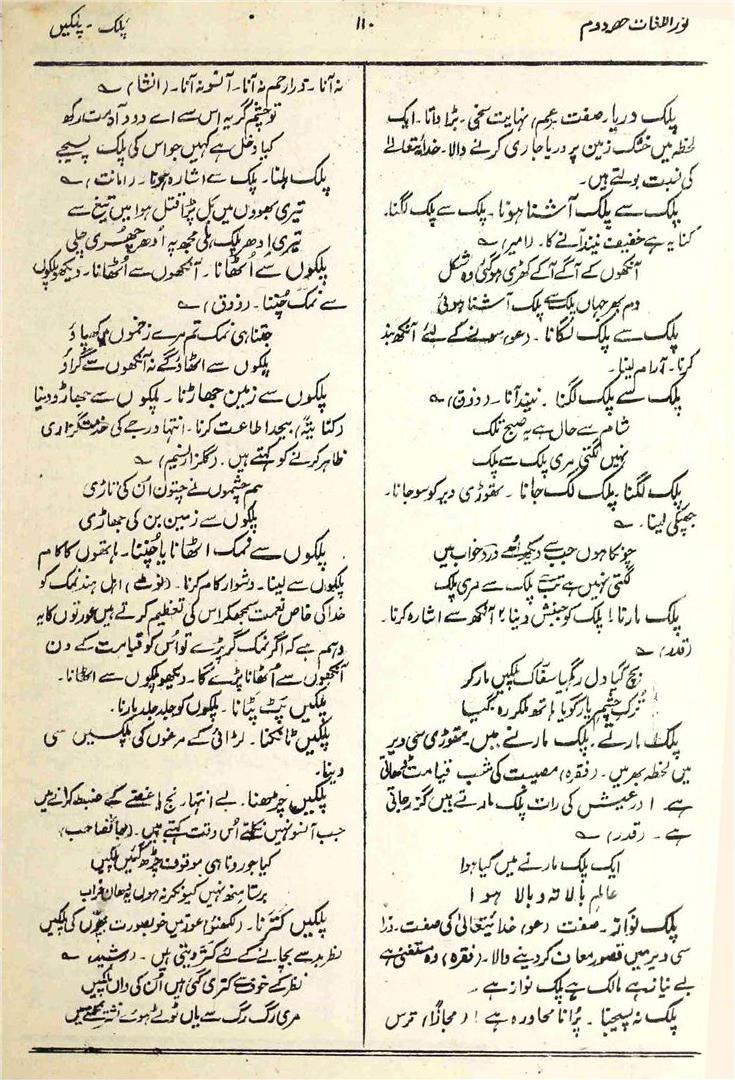 نور اللغات حصہ دوم
۱۱۰
پلک ۔ پلکیں
پلک دریا۔ صفت عم، نہایت سخی۔ بڑا داتا۔ ایک
لحظہ میں خشک زمین پر دریا جاری کرنے والا۔ خدائے تعالےٰ
کی نسبت بولتے ہیں۔
پلک سے پلک آشنا ہونا ۔ پلک سے پلک لگنا۔
کنایہ ہے خفیف نیند آنے کا۔ (امیر) ؎
آنکھوں کے آگے آکے کھڑی ہوگئی وہ شکل
دم بھر جہاں پلک سے پلک آشنا ہوئی
پلک سے پلک لگانا ۔ (عو) سونے کے لئے آنکھ بند
کرنا۔ آرام لینا۔
پلک سے پلک لگنا ۔ نیند آنا ۔ (ذوق) ؎
شام سے حال ہے یہ صبح تلک
نہیں لگتی مری پلک سے پلک
پلک لگنا ۔ پلک لگ جانا ۔ تھوڑی دیر کو سو جانا۔
جھپکی لینا۔ ؎
چونکا ہوں جب سے دیکھ کے درد خواب میں
لگتی نہیں ہے تب سے پلک سے مری پلک
پلک مارنا۔ ۱ پلک کو جنبش دینا ۲ آنکھ سے اشارہ کرنا۔
(قدر) ؎
بچ گیا دل رہ گیا سفاک پلکیں مار کو
ترک چشم یار گویا ہاتھ ملکر رہ گیا
پلک مارتے۔ پلک مارنے میں۔ تھوڑی سی دیر
میں لحظہ بھر میں۔ (فقرہ) مصیبت کی شب قیامت ڈھاتی
ہے اور عیش کی رات پلک مارتے میں گزر جاتی
ہے ۔ (قدر) ؎
ایک پلک مارنے میں گیا ہوا
عالم بالا تہ و بالا ہوا
پلک نواز۔ صفت (عو) خدائیتعالیٰ کی صفت۔ ذرا
سی دیر میں قصور معاف کر دینے والا۔ (فقرہ) وہ مستغنی ہے
بے نیاز ہے مالک ہے پلک نواز ہے ۔
پلک نہ پسیجنا ۔ پرانا محاورہ ہے ! (مجازاً) ترس
نہ آنا ۔ ذرا رحم نہ آنا۔ آنسو نہ آنا۔ (انشا) ؎
تو چشم گریہ اس سے اے دود آہ مت رکھ
کیا دخل ہے کہیں جو اس کی پلک پسیجے
پلک ہلنا۔ پلک سے اشارہ ہونا۔ (امانت) ؎
تیری بھووں میں بل پڑا قتل ہوا میں تیغ سے
تیری ادھر پلک ہلی مجھ پہ ادھر چھری چلی
پلکوں سے اٹھانا ۔ آنکھوں سے اٹھانا۔ دیکھو پلکوں
سے نمک چننا ۔ (ذوق) ؎
جتنا ہی نمک تم مرے زخموں میں کھپاؤ
پلکوں سے اٹھاؤگے نہ آنکھوں سے گراؤ
پلکوں سے زمین جھاڑنا ۔ پلکوں سے جھاڑو دینا
(کنایۃً) بیحد اطاعت کرنا۔ انتہا درجے کی خدمتگزاری
ظاہر کرنے کو کہتے ہیں۔ (گلزار نسیم) ؎
ہم چشموں نے چتون ان کی تاڑی
پلکوں سے زمین بن کی جھاڑی
پلکوں سے نمک اٹھانا یا چننا۔ ہاتھوں کا کام
پلکوں سے لینا۔ دشوار کام کرنا۔ (نوٹ) اہل ہند نمک کو
خدا کی خاص نعمت سمجھکر اس کی تعظیم کرتے ہیں عورتوں کا یہ
وہم ہے کہ اگر نمک گر پڑے تو اُس کو قیامت کے دن
آنکھوں سے اُٹھانا پڑے گا۔ دیکھو پلکوں سے اٹھانا۔
پلکیں پٹ پٹانا ۔ پلکوں کو جلد جلد مارنا۔
پلکیں ٹانکنا۔ لڑائی کے مرغوں کی پلکیں سی
دینا۔
پلکیں چڑھنا۔ بے انتہا رنج یا غصے کے ضبط کرانے میں
جب آنسو نہیں نکلتے اُس وقت کہتے ہیں۔ (جانصاحب)
کیا جو رونا ہی موقوف چڑھ گئیں پلکیں
برستا منھ نہیں کیونکر نہ ہوں یہ دھان خراب
پلکیں کترنا۔ (لکھنؤ) عورتیں خوبصورت بچوں کی پلکیں
نظر بد سے بچانے کے لئے کتر دیتی ہیں ۔ (رشید) ؎
نظر کے خوف سے کتری گئی ہیں اُن کی واں پلکیں
مری رگ رگ سے یاں ٹوٹے ہوئے نشتر نکلتے ہیں